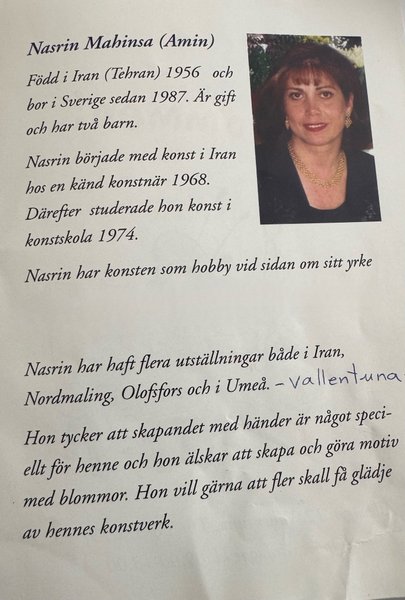 Nasrin Mahinsa (Amin)
Född i Iran (Tehran) 1956 och
bor i Sverige sedan 1987. Är gift
och har två barn.
Nasrin började med konst i Iran
hos en känd konstnär 1968.
Därefter studerade hon konst i
konstskola 1974.
Nasrin har konsten som hobby vid sidan om sitt yrke
Nasrin har haft flera utställningar både i Iran,
Nordmaling, Olofsfors och i Umeå. – Vallentuna
Hon tycker att skapandet med händer är något speci-
ellt för henne och hon älskar att skapa och göra motiv
med blommor. Hon vill gärna att fler skall få glädje
av hennes konstverk.